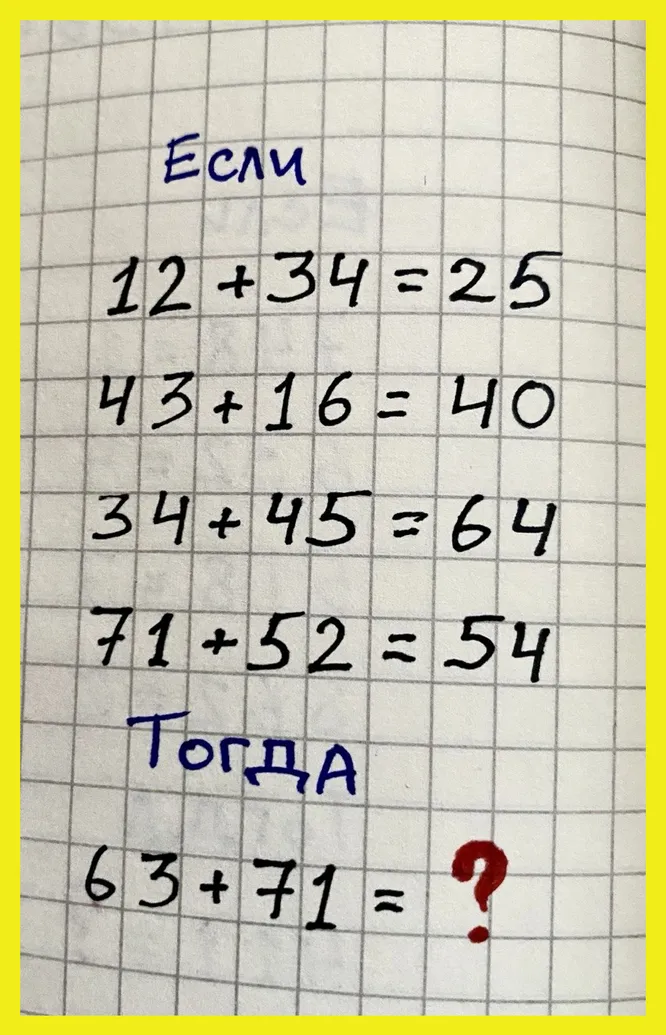 Если
12 + 34 = 25
43 + 16 = 40
34 + 45 = 64
71 + 52 = 54
Тогда
63 + 71 = ?